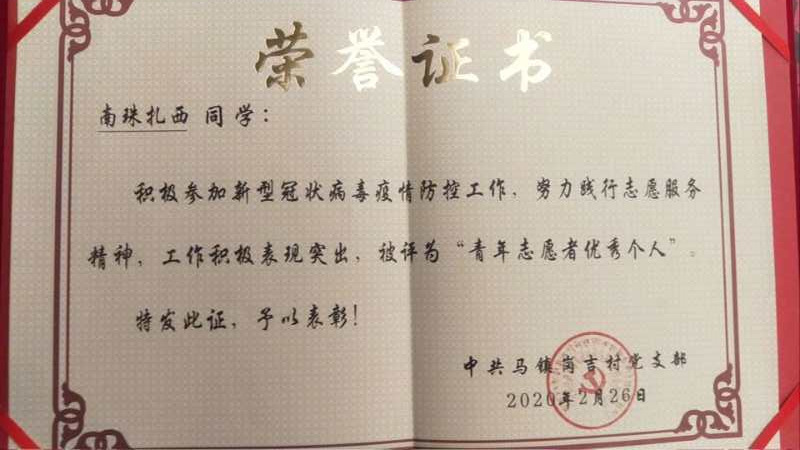 荣誉证书
南珠扎西 同学：
积极参加新型冠状病毒疫情防控工作，努力践行志愿服务
精神，工作积极表现突出，被评为“青年志愿者优秀个人”。
特发此证，予以表彰！
中共马镇岗吉村党支部
2020年2月26日